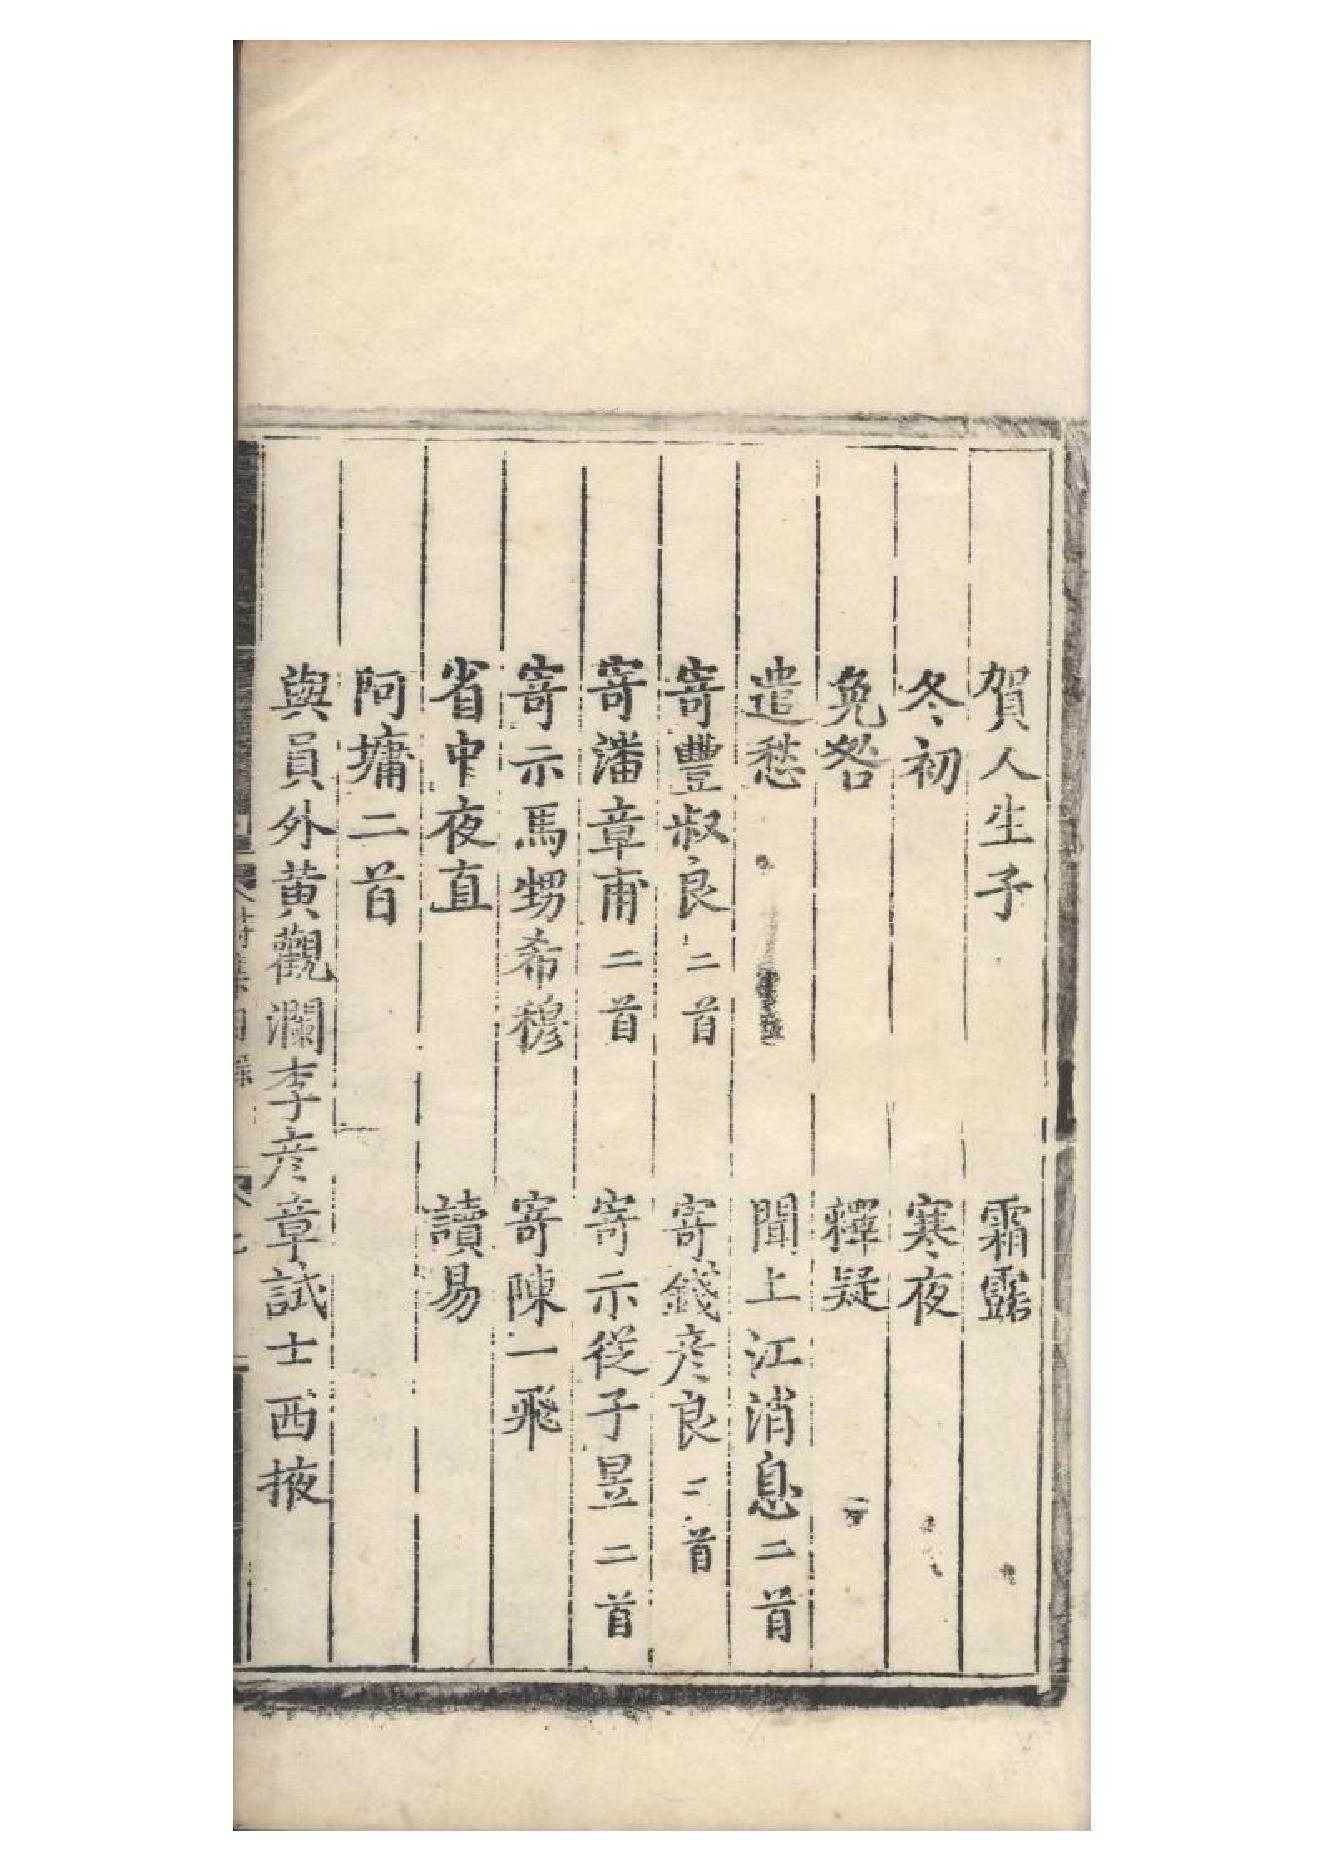 賀人生子　霜露
冬初　寒夜
免咎　釋疑
遣愁　聞上江消息二首
寄豐叔良二首　寄錢彦良二首
寄潘章甫二首　寄示從子昱二首
寄示馬甥希穆　寄陳一飛
省中夜直　讀易
阿墉二首
與員外黄觀瀾李彦章試士西掖